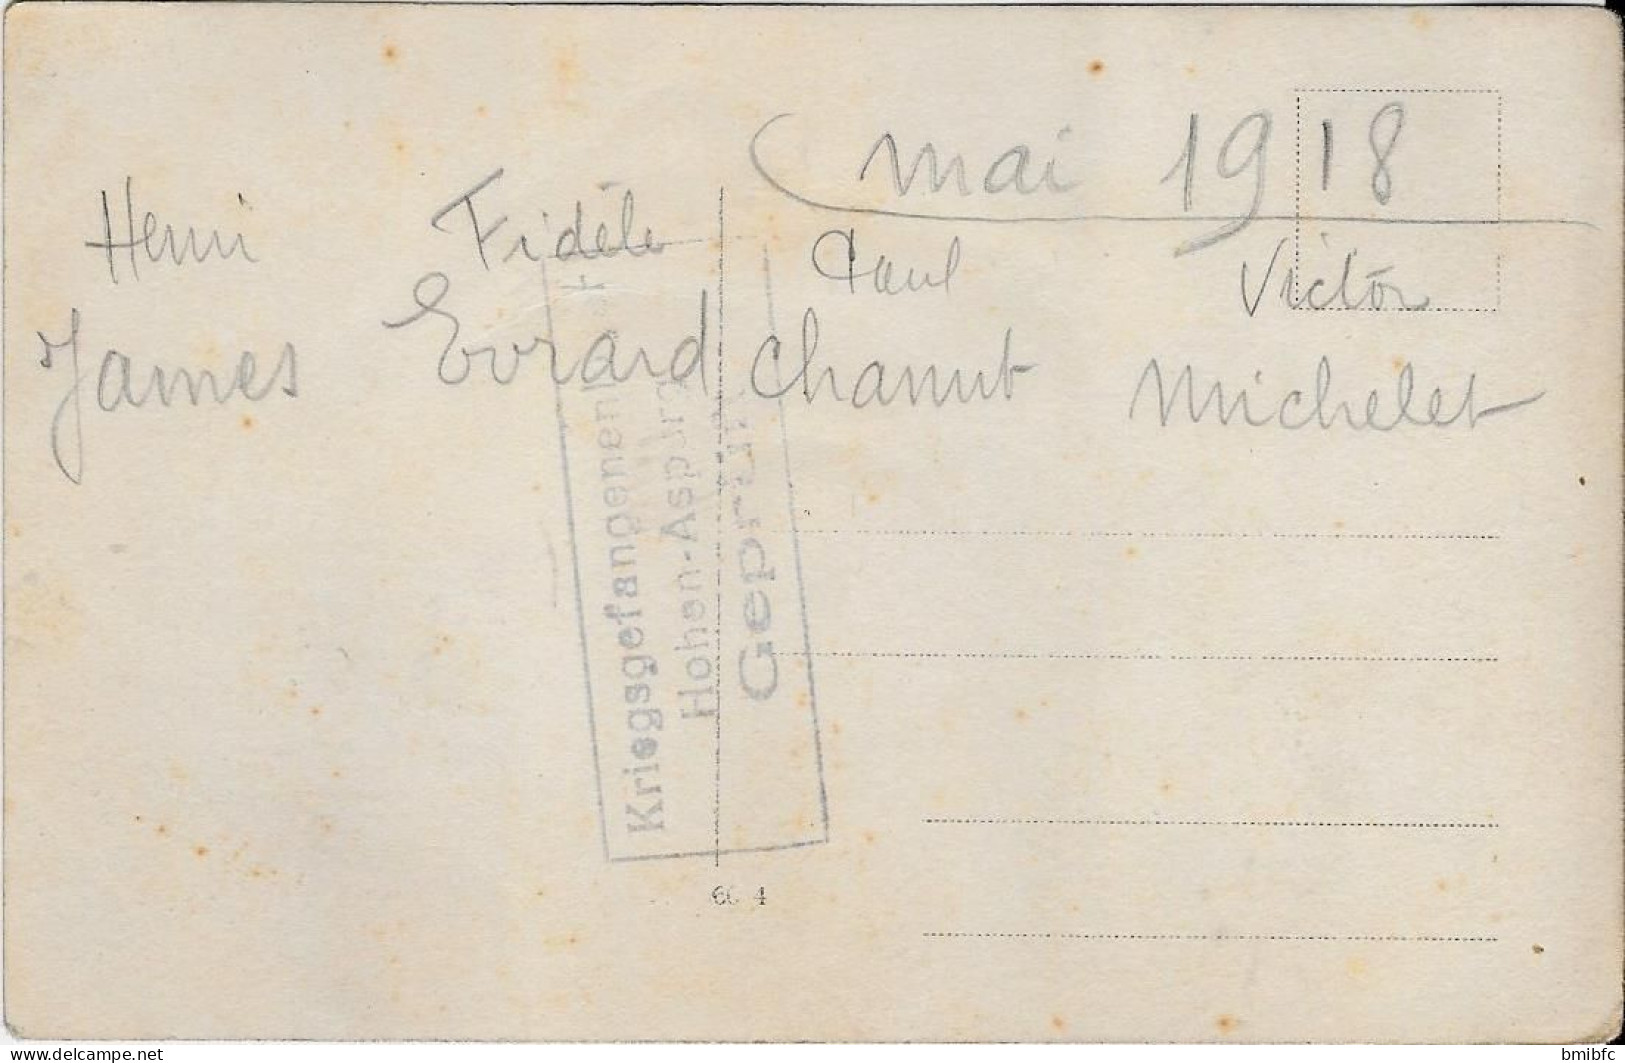 mai 1918
Henri Fidèle Paul Victor
James Evrard Chanut Michelet
Kriegsgefangenen
Hohen-Asperg
Geprüft
66 4
delcampe.net
bmibfc